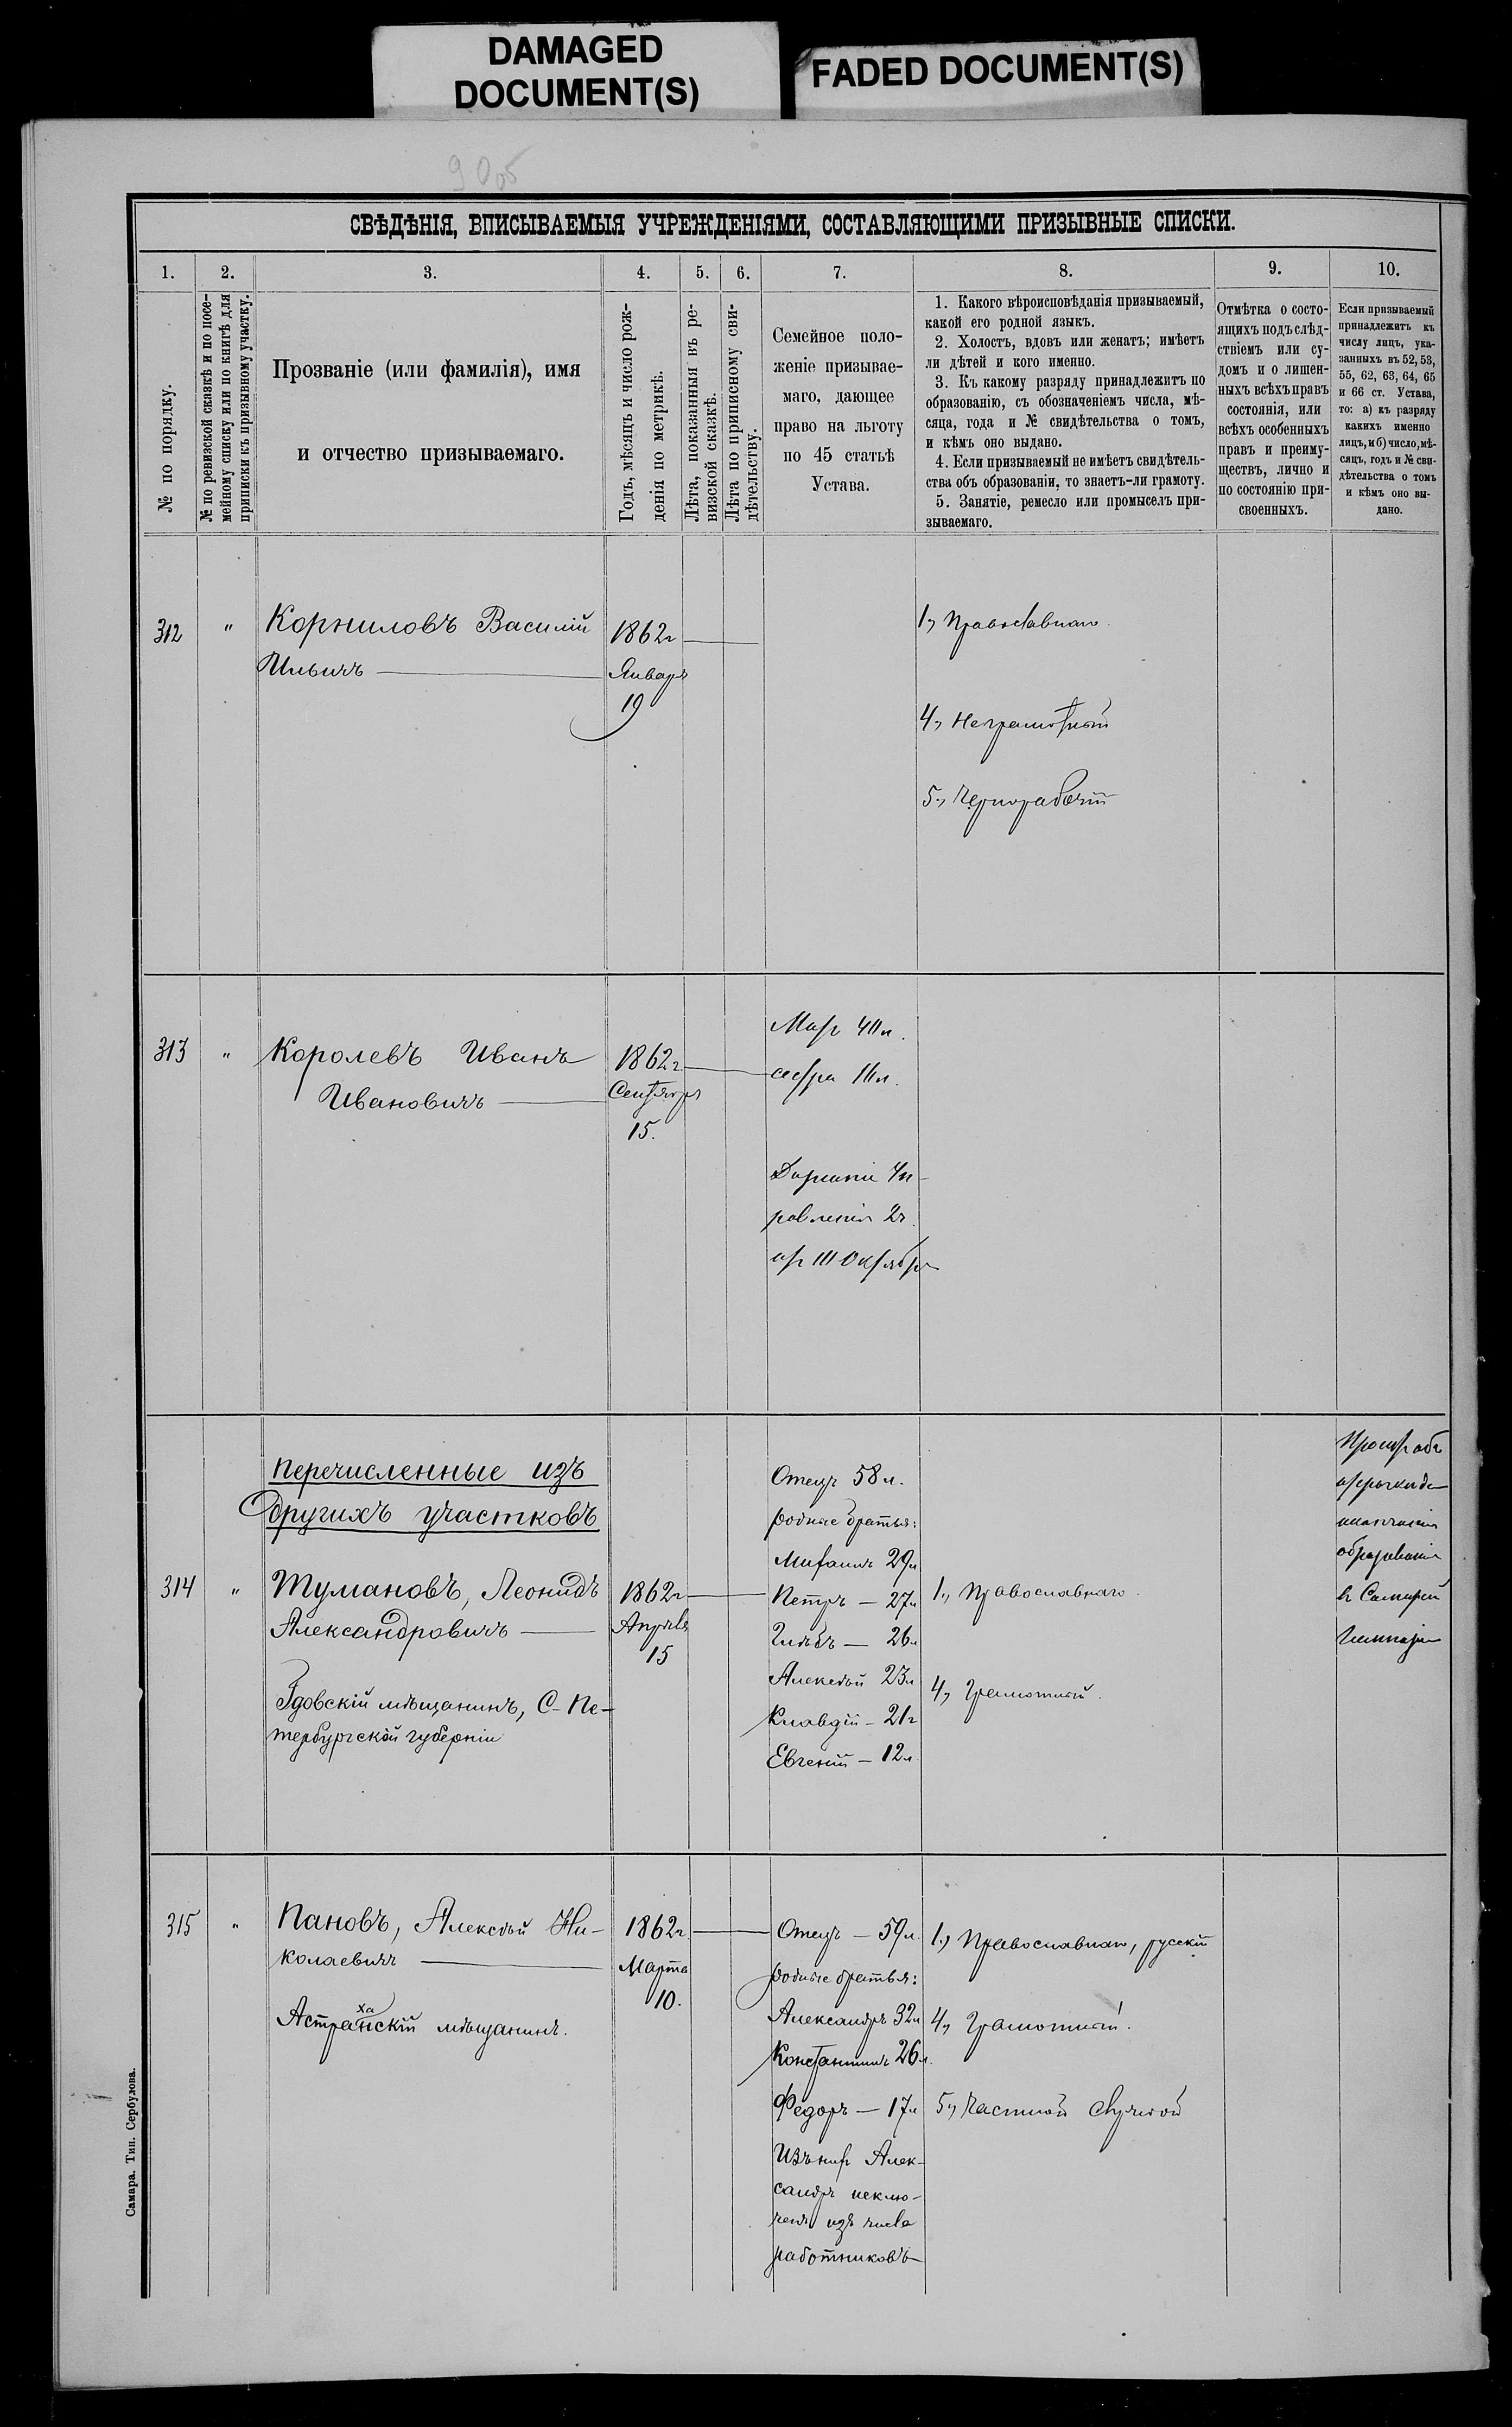 DAMAGED
DOCUMENT(S)
FADED DOCUMENT(S)
90 об
СВѢДѢНІЯ, ВПИСЫВАЕМЫЯ УЧРЕЖДЕНІЯМИ, СОСТАВЛЯЮЩИМИ ПРИЗЫВНЫЕ СПИСКИ.
1. 2. 3. 4. 5. 6. 7. 8. 9. 10.
№ по порядку.
№ по ревизской сказкѣ и по посе-
мейному списку или по книгѣ для
приписки къ призывному участку.
Прозваніе (или фамилія), имя
и отчество призываемаго.
Годъ, мѣсяцъ и число рож-
денія по метрикѣ.
Лѣта, показанныя въ ре-
визской сказкѣ.
Лѣта по приписному сви-
дѣтельству.
Семейное поло-
женіе призывае-
маго, дающее
право на льготу
по 45 статьѣ
Устава.
1. Какого вѣроисповѣданія призываемый,
какой его родной языкъ.
2. Холостъ, вдовъ или женатъ; имѣетъ
ли дѣтей и кого именно.
3. Къ какому разряду принадлежитъ по
образованію, съ обозначеніемъ числа, мѣ-
сяца, года и № свидѣтельства о томъ,
и кѣмъ оно выдано.
4. Если призываемый не имѣетъ свидѣтель-
ства объ образованіи, то знаетъ-ли грамоту.
5. Занятіе, ремесло или промыселъ при-
зываемаго.
Отмѣтка о состо-
ящихъ подъ слѣд-
ствіемъ или су-
домъ и о лишен-
ныхъ всѣхъ правъ
состоянія, или
всѣхъ особенныхъ
правъ и преиму-
ществъ, лично и
по состоянію при-
своенныхъ.
Если призываемый
принадлежитъ къ
числу лицъ, ука-
занныхъ въ 52, 53,
55, 62, 63, 64, 65
и 66 ст. Устава,
то: а) къ разряду
какихъ именно
лицъ, и б) число, мѣ-
сяцъ, годъ и № сви-
дѣтельства о томъ
и кѣмъ оно вы-
дано.
312 " Корниловъ Василій
Ильичъ
1862г
Января
19
1, Православнаго.
4, Неграмотный
5, Чернорабочій
313 " Королевъ Иванъ
Ивановичъ
1862г
Сентября
15.
Мать
сестра
Перечисленные изъ
другихъ участковъ
314 " Тумановъ, Леонидъ
Александровичъ
Гдовскій мѣщанинъ, С-Пе-
тербургской губерніи
1862г
Апрѣля
15
Отецъ 58 л.
родные братья:
Михаилъ 29л
Петръ — 27л
Глѣбъ — 26л
Алексѣй 23л
Клавдій — 21г
Евгеній — 12л.
1, Православнаго.
4, Грамотный.
образованія
315 " Пановъ, Алексѣй Ни-
колаевичъ
Астраханскій мѣщанинъ.
1862г
Марта
10.
Отецъ — 59л.
родные братья:
Александръ 32л
Константинъ 26л.
Федоръ — 17л
Изъ нихъ Алек-
сандръ исклю-
ченъ изъ числа
работниковъ
1, Православнаго, русскій
4, Грамотный.
5, Частной службой
Самара. Тип. Сербулова.